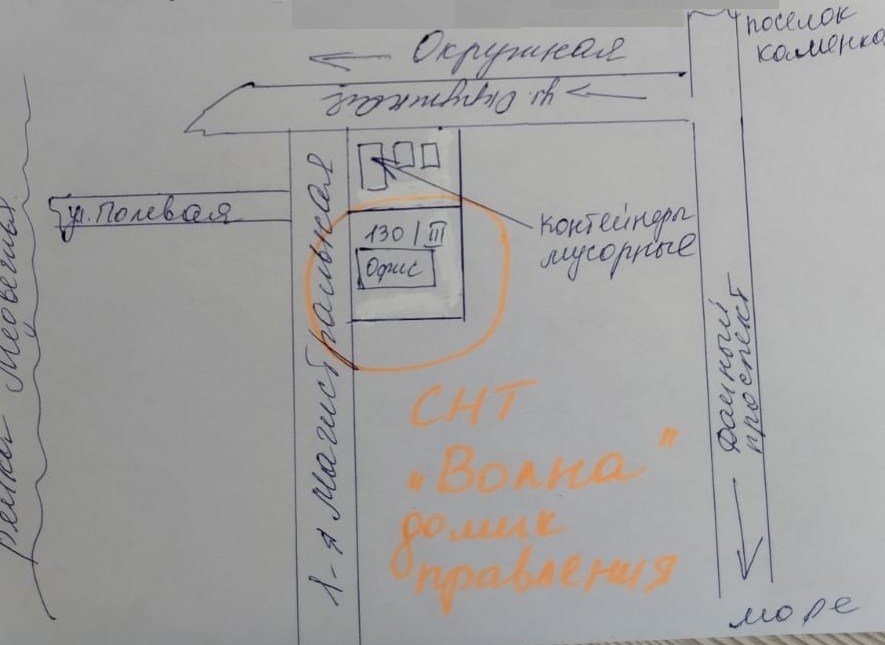 Окружная
поселок
каменка
ул. Окружная
ул. Полевая
контейнеры
мусорные
130 / III
Офис
1-я Магистральная
речка Медвежья
Дачный
проспект
СНТ
„Волна"
домик
правления
море